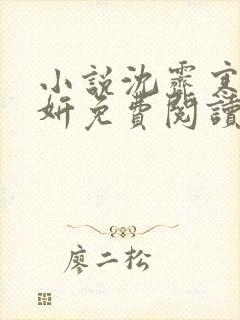 小說沈霽寒
妍免費閱讀
廖二松